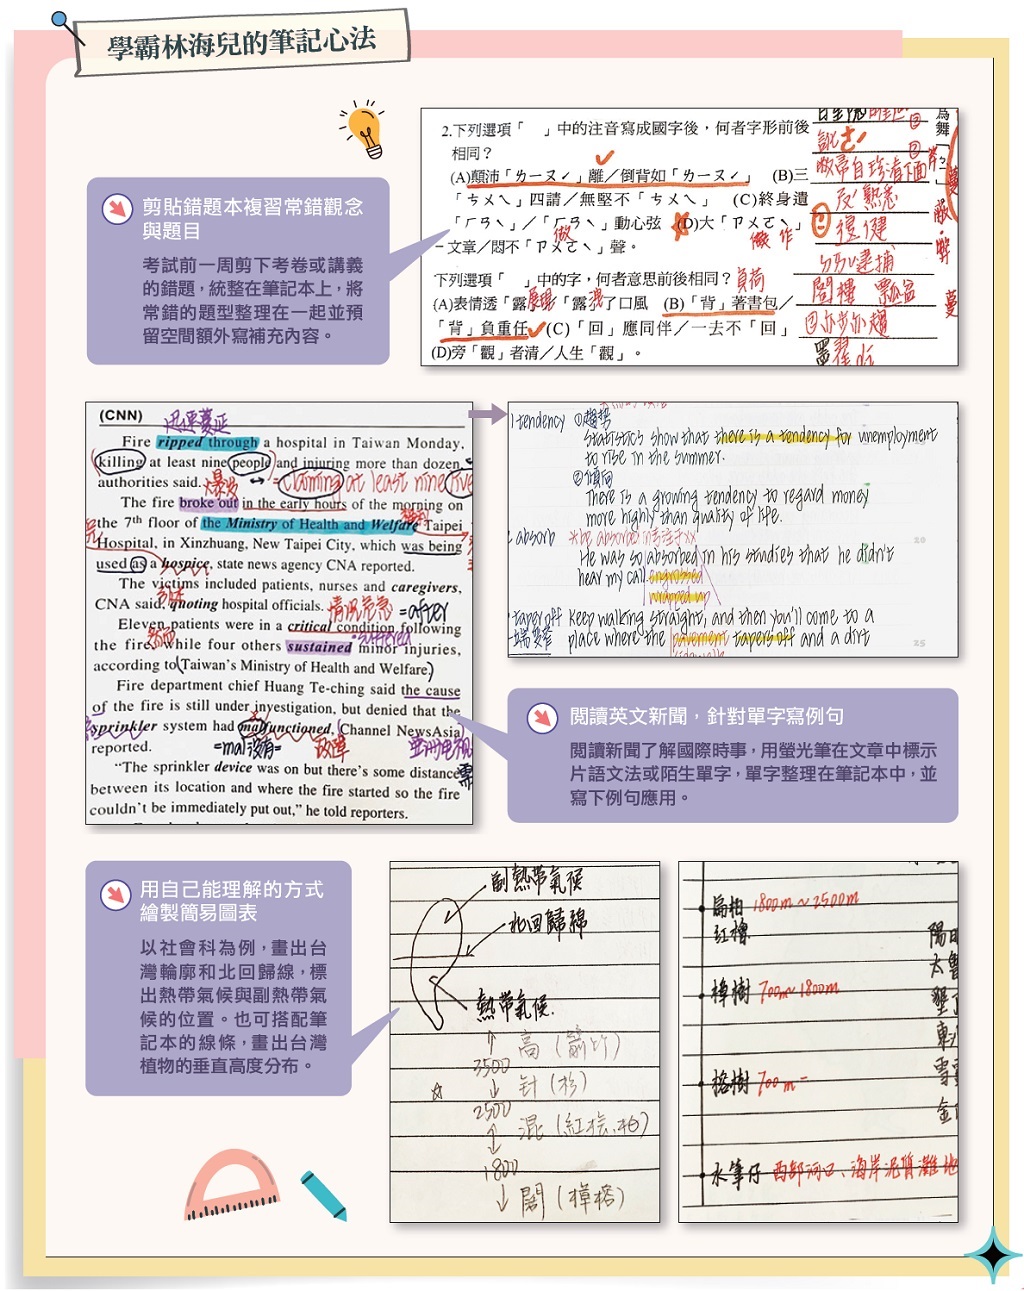 學霸林海兒的筆記心法
剪貼錯題本複習常錯觀念
與題目
考試前一周剪下考卷或講義
的錯題，統整在筆記本上，將
常錯的題型整理在一起並預
留空間額外寫補充內容。
2.下列選項「　」中的注音寫成國字後，何者字形前後
相同？
(A)顛沛「ㄌㄧㄡˊ」離／倒背如「ㄌㄧㄡˊ」　(B)三
「ㄘㄨㄟˋ」四請／無堅不「ㄘㄨㄟˋ」　(C)終身遺
「ㄏㄢˋ」／「ㄏㄢˋ」動心弦　(D)大「ㄗㄨㄛˋ」
文章／悶不「ㄗㄨㄛˋ」聲。
做 作
下列選項「　」中的字，何者意思前後相同？ 負荷
(A)表情透「露」／「露」了口風　(B)「背」著書包／
「背」負重任　(C)「回」應同伴／一去不「回」
(D)旁「觀」者清／人生「觀」。
敝帚自珍
逮捕
(CNN)
迅速蔓延
Fire ripped through a hospital in Taiwan Monday,
killing at least nine people and injuring more than dozen,
authorities said. 爆發 ↔ =claiming at least nine lives
The fire broke out in the early hours of the morning on
the 7th floor of the Ministry of Health and Welfare Taipei
Hospital, in Xinzhuang, New Taipei City, which was being
used as a hospice, state news agency CNA reported.
The victims included patients, nurses and caregivers,
CNA said, quoting hospital officials. 情況危急 =after
Eleven patients were in a critical condition following
=suffered
the fire, while four others sustained minor injuries,
according to (Taiwan's Ministry of Health and Welfare.)
Fire department chief Huang Te-ching said the cause
of the fire is still under investigation, but denied that the
sprinkler system had malfunctioned, (Channel NewsAsia)
reported. =mal沒有= 故障 亞洲電視
"The sprinkler device was on but there's some distance
between its location and where the fire started so the fire
couldn't be immediately put out," he told reporters.
tendency ①趨勢
Statistics show that there is a tendency for unemployment
to rise in the summer.
②傾向
There is a growing tendency to regard money
more highly than quality of life.
absorb
He was so absorbed in his studies that he didn't
hear my call. engrossed
wrapped up
taper off Keep walking straight, and then you'll come to a
place where the pavement tapers off and a dirt
20
25
閱讀英文新聞，針對單字寫例句
閱讀新聞了解國際時事，用螢光筆在文章中標示
片語文法或陌生單字，單字整理在筆記本中，並
寫下例句應用。
用自己能理解的方式
繪製簡易圖表
以社會科為例，畫出台
灣輪廓和北回歸線，標
出熱帶氣候與副熱帶氣
候的位置。也可搭配筆
記本的線條，畫出台灣
植物的垂直高度分布。
副熱帶氣候
北回歸線
熱帶氣候
↑ 高(箭竹)
3500
☆ ↓ 針(杉)
2500
↕ 混(紅檜.柏)
1800
↓ 闊(樟榕)
扁柏 1800m～2500m
紅檜
樟樹 700m～1800m
榕樹 700m－
水筆仔 西部河口、海岸泥質灘地